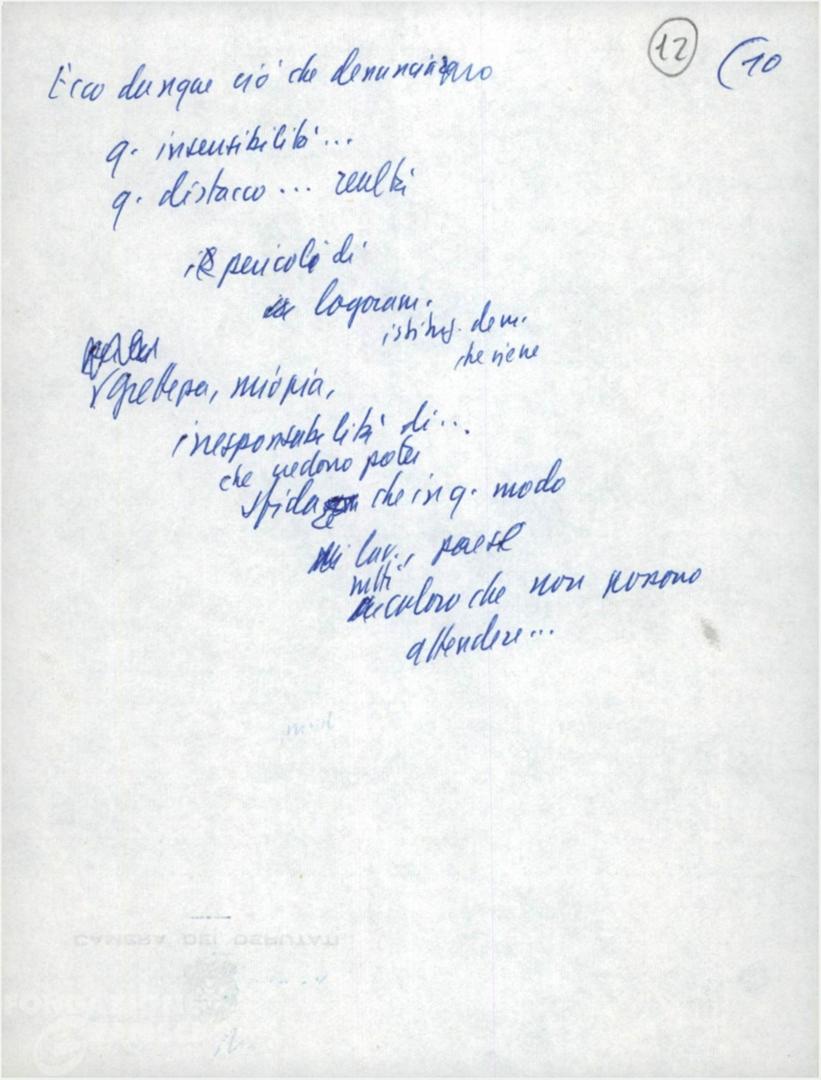 12 (10
Ecco dunque ciò che denunciamo
q. insensibilità...
q. distacco... realtà
il pericolo di
logoram.
istituz. dem.
che viene
grettezza, miopia,
irresponsabilità di...
che credono poter
sfidare che in q. modo
lav., paese
tutti
coloro che non possono
attendere...
CAMERA DEI DEPUTATI